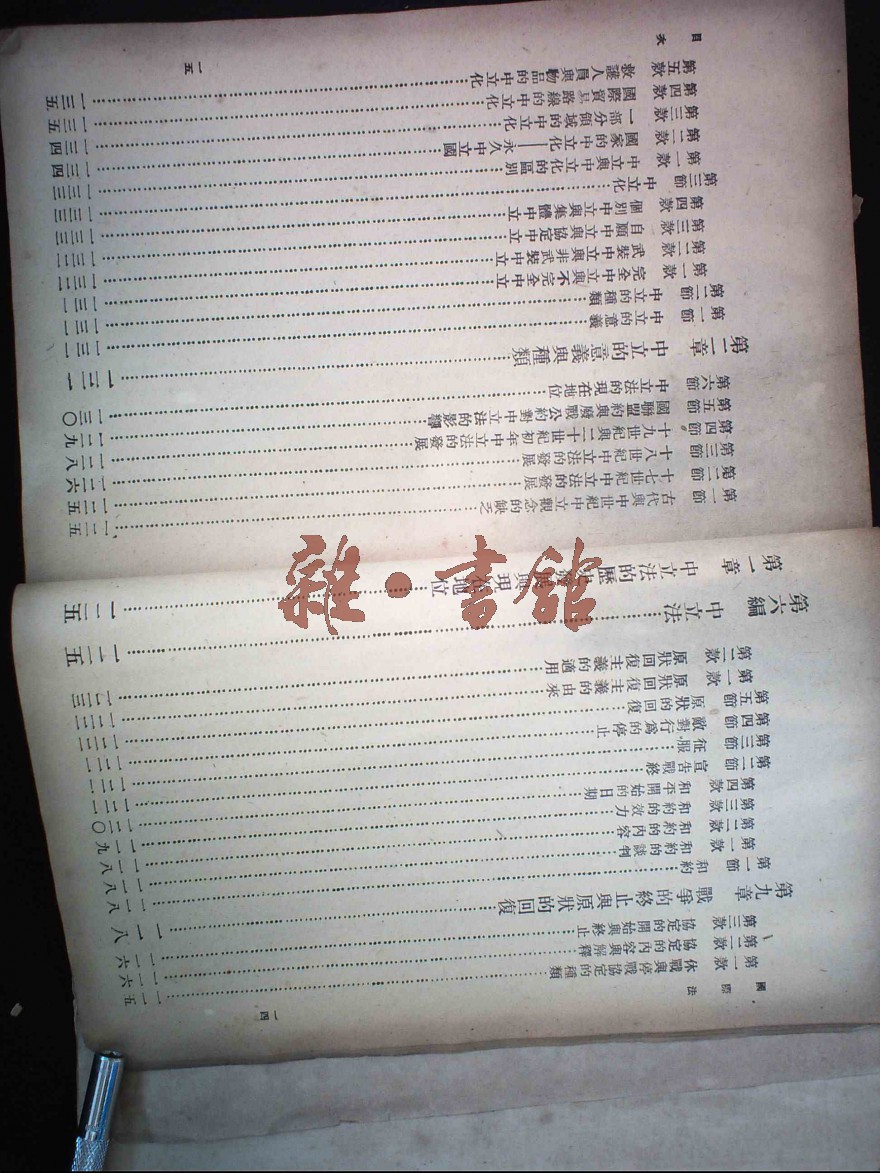 國際法
一四
第一款 休戰與停戰協定的種類……一一五
第二款 協定的內容與解釋……一一六
第三款 協定的開始與終止……一一六
第九章 戰爭的終止與原狀的回復……一一八
第一節 和約……一一八
第一款 和約的談判……一一八
第二款 和約的內容……一一九
第三款 和約的效力……一二〇
第四款 和平開始的日期……一二一
第二節 宣告戰終……一二一
第三節 征服……一二一
第四節 敵對行為的停止……一二二
第五節 原狀的回復……一二二
第一款 原狀回復主義的由來……
第二款 原狀回復主義的適用……
第六編 中立法……一二五
第一章 中立法的歷史發展與現在地位……一二五
目次
一五
第一節 古代與中世紀中立觀念的缺乏……一二五
第二節 十七世紀中立法的發展……一二五
第三節 十八世紀中立法的發展……一二六
第四節 十九世紀與二十世紀初年中立法的發展……一二八
第五節 國聯盟約與廢戰公約對中立法的影響……一二九
第六節 中立法的現在地位……一三〇
第二章 中立的意義與種類……一三一
第一節 中立的意義……一三一
第二節 中立的種類……一三一
第一款 完全中立與不完全中立……一三一
第二款 武裝中立與非武裝中立……一三二
第三款 自願中立與協定中立……一三三
第四款 個別中立與集體中立……一三三
第三節 中立化……一三三
第一款 中立與中立化的區別……一三四
第二款 國家的中立化——永久中立國……一三四
第三款 一部分領域的中立化……一三五
第四款 國際貿易路線的中立化……一三五
第五款 救護人員與物品的中立化
雜·書館